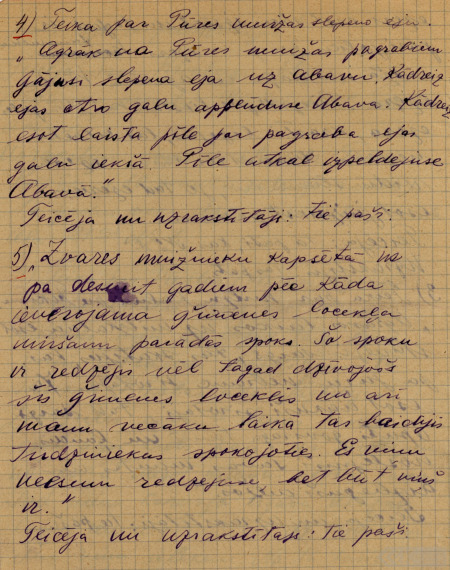 4) Teika par Pūres muižas slepeno eju.
„Agrāk no Pūres muižas pagrabiem
gājusi slepena eja uz Abavu. Kādreiz
ejas otro galu applūduse Abava. Kādreiz
esot laista pīle par pagraba ejas
galu iekšā. Pīle atkal izpeldējuse
Abavā."
Teicēja un uzrakstītāji: tie paši.
5) „Zvāres muižnieku kapsētā ik
pa desmit gadiem pēc kāda
ievērojama ģimenes locekļa
miršanu parādās spoks. Šo spoku
ir redzējis vēl tagad dzīvojošs
šīs ģimenes loceklis un arī
manu vecāku laikā tas baidījis
līdziniekus spokojoties. Es viņu
neesmu redzējuse, bet būt viņš
ir."
Teicēja un uzrakstītāji: tie paši.